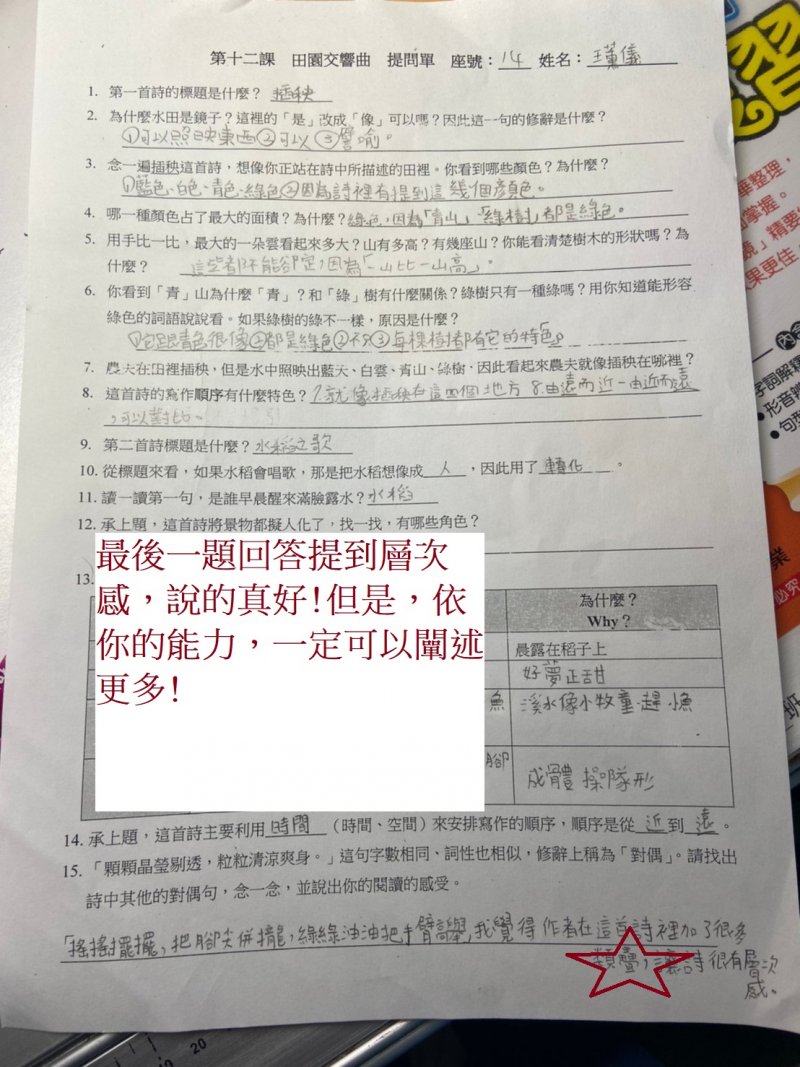 第十二課 田園交響曲 提問單 座號：14 姓名：
1. 第一首詩的標題是什麼？插秧
2. 為什麼水田是鏡子？這裡的「是」改成「像」可以嗎？因此這一句的修辭是什麼？
①可以照映東西②可以③譬喻。
3. 念一遍插秧這首詩，想像你正站在詩中所描述的田裡。你看到哪些顏色？為什麼？
①藍色、白色、青色、綠色②因為詩裡有提到這幾個顏色。
4. 哪一種顏色占了最大的面積？為什麼？綠色，因為「青山」「綠樹」都是綠色。
5. 用手比一比，最大的一朵雲看起來多大？山有多高？有幾座山？你能看清楚樹木的形狀嗎？為
什麼？ 這些都不能確定，因為「一山比一山高」。
6. 你看到「青」山為什麼「青」？和「綠」樹有什麼關係？綠樹只有一種綠嗎？用你知道能形容
綠色的詞語說說看。如果綠樹的綠不一樣，原因是什麼？
①它跟青色很像②都是綠色②不③每棵樹都有它的特色。
7. 農夫在田裡插秧，但是水中照映出藍天、白雲、青山、綠樹，因此看起來農夫就像插秧在哪裡？
8. 這首詩的寫作順序有什麼特色？7.就像插秧在這四個地方 8.由遠而近－由近而遠
，可以對比。
9. 第二首詩標題是什麼？水稻之歌
10. 從標題來看，如果水稻會唱歌，那是把水稻想像成 人 ，因此用了 轉化 。
11. 讀一讀第一句，是誰早晨醒來滿臉露水？水稻
12. 承上題，這首詩將景物都擬人化了，找一找，有哪些角色？
最後一題回答提到層次
感，說的真好!但是，依
你的能力，一定可以闡述
更多!
13.
為什麼？
Why？
晨露在稻子上
好夢正甜
魚 溪水像小牧童 趕小魚
腳
成體操隊形
14. 承上題，這首詩主要利用 時間 （時間、空間）來安排寫作的順序，順序是從 近 到 遠 。
15. 「顆顆晶瑩剔透，粒粒清涼爽身。」這句字數相同、詞性也相似，修辭上稱為「對偶」。請找出
詩中其他的對偶句，念一念，並說出你的閱讀的感受。
「搖搖擺擺，把腳尖併攏，綠綠油油把手臂高舉，我覺得作者在這首詩裡加了很多
類疊，讓詩很有層次
感。
20
整理，
掌握。
」精要
果更佳
字詞解釋
•形音辨
•句型
業
必究
班